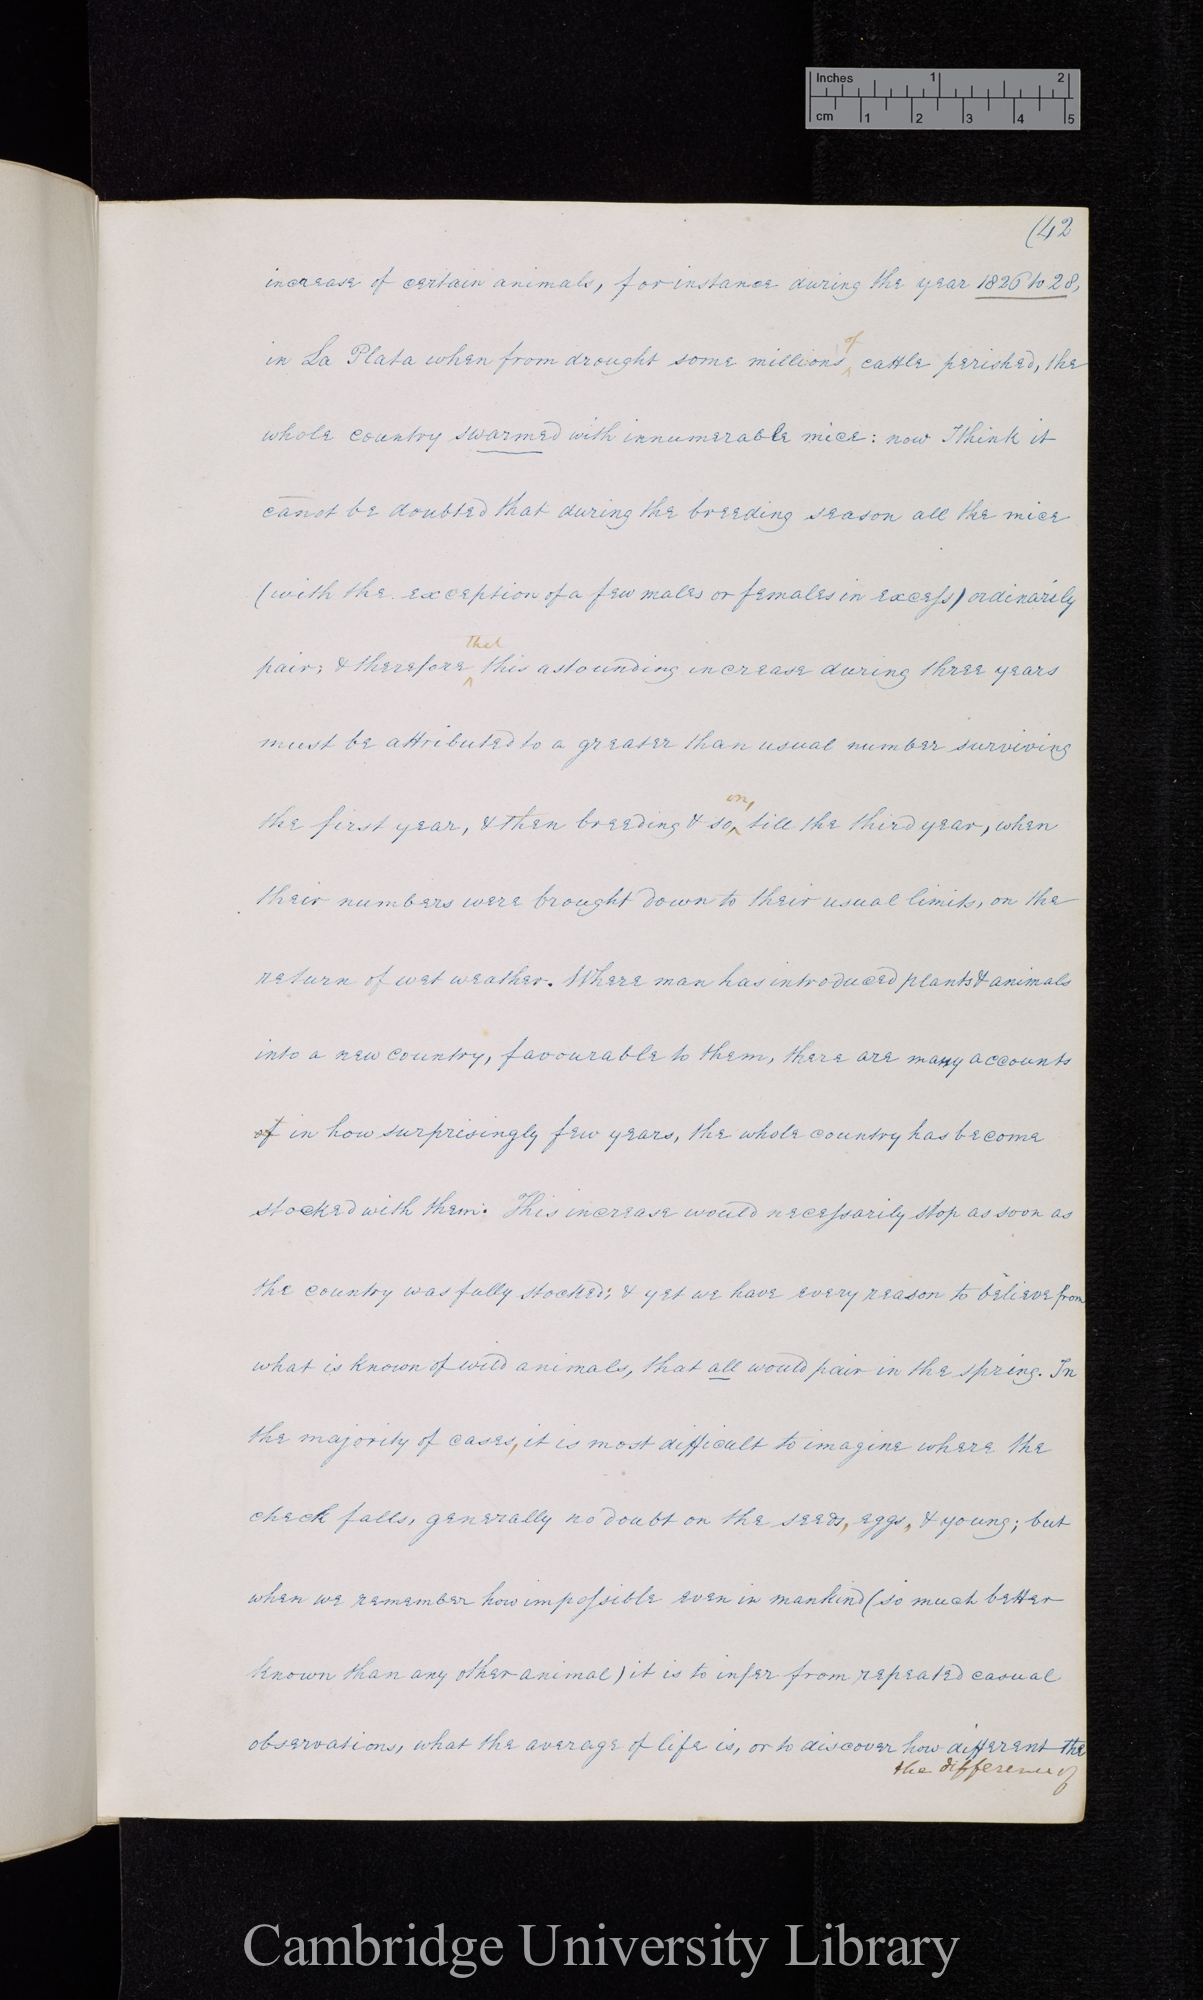 Inches 1 2
cm 1 2 3 4 5
(42
increase of certain animals, for instance during the year 1826 to 28,
of
in La Plata when from drought some millions ^ cattle perished, the
whole country swarmed with innumerable mice: now I think it
canot be doubted that during the breeding season all the mice
(with the exception of a few males or females in excess) ordinarily
that
pair; & therefore ^ this astounding increase during three years
must be attributed to a greater than usual number surviving
on,
the first year, & then breeding & so, ^ till the third year, when
their numbers were brought down to their usual limits, on the
return of wet weather. Where man has introduced plants & animals
into a new country, favourable to them, there are many accounts
of in how surprisingly few years, the whole country has become
stocked with them. This increase would necessarily stop as soon as
the country was fully stocked; & yet we have every reason to believe from
what is known of wild animals, that all would pair in the spring. In
the majority of cases, it is most difficult to imagine where the
check falls, generally no doubt on the seeds, eggs, & young; but
when we remember how impossible even in mankind (so much better
known than any other animal) it is to infer from repeated casual
observations, what the average of life is, or to discover how different the
the difference of
Cambridge University Library